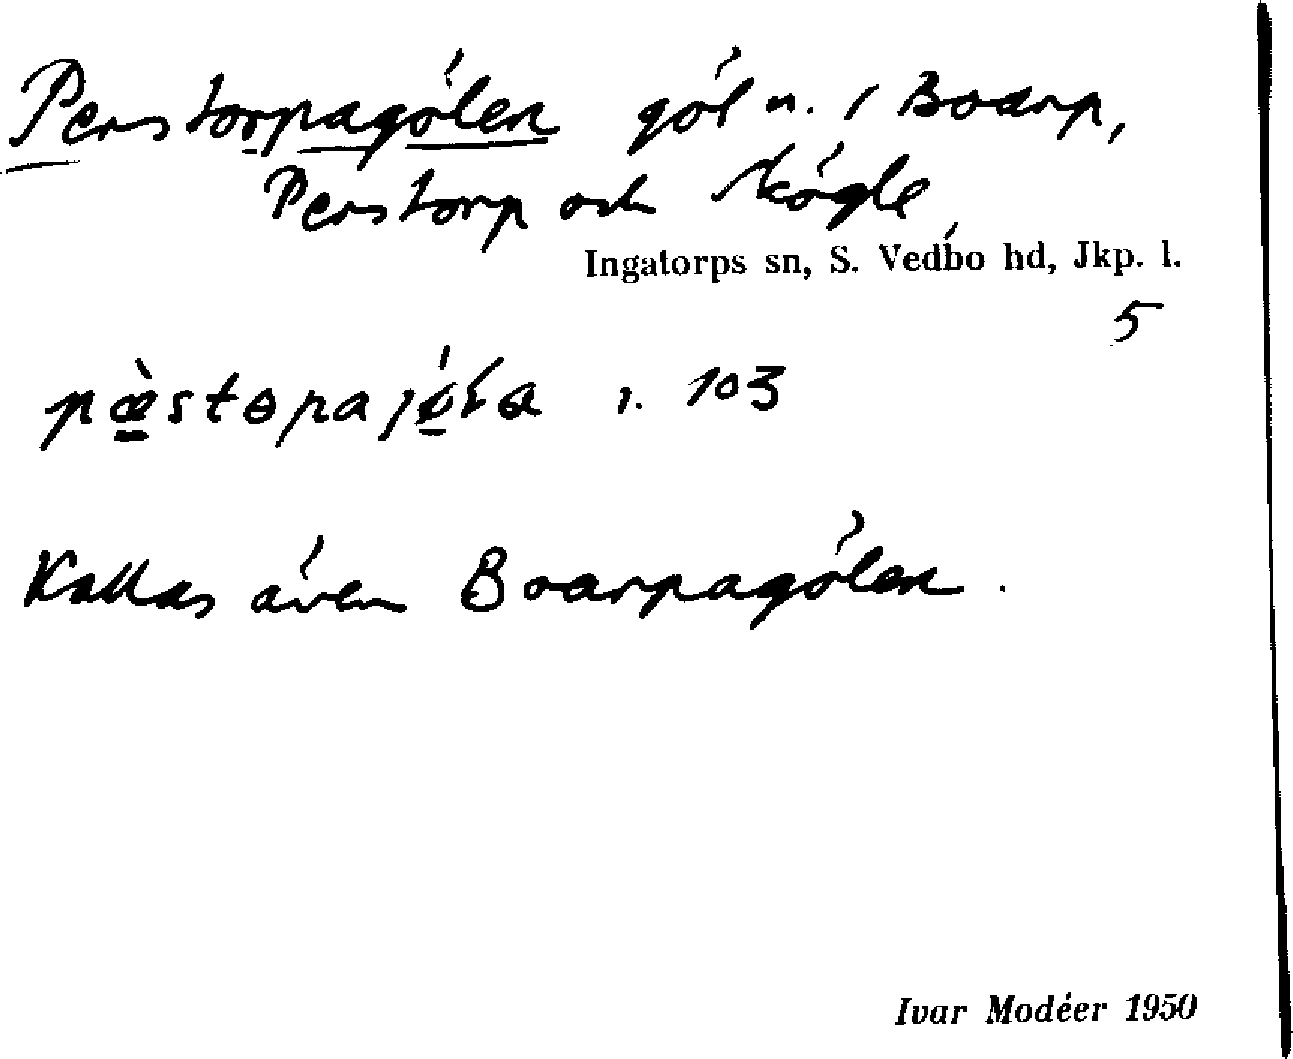 Perstorpagölen göl n. i Boarp,
Perstorp och Skögle,
Ingatorps sn, S. Vedbo hd, Jkp. l.
5
pæ̀stɵpajǿ́la i. 103
Kallas även Boarpagölen.
Ivar Modéer 1950